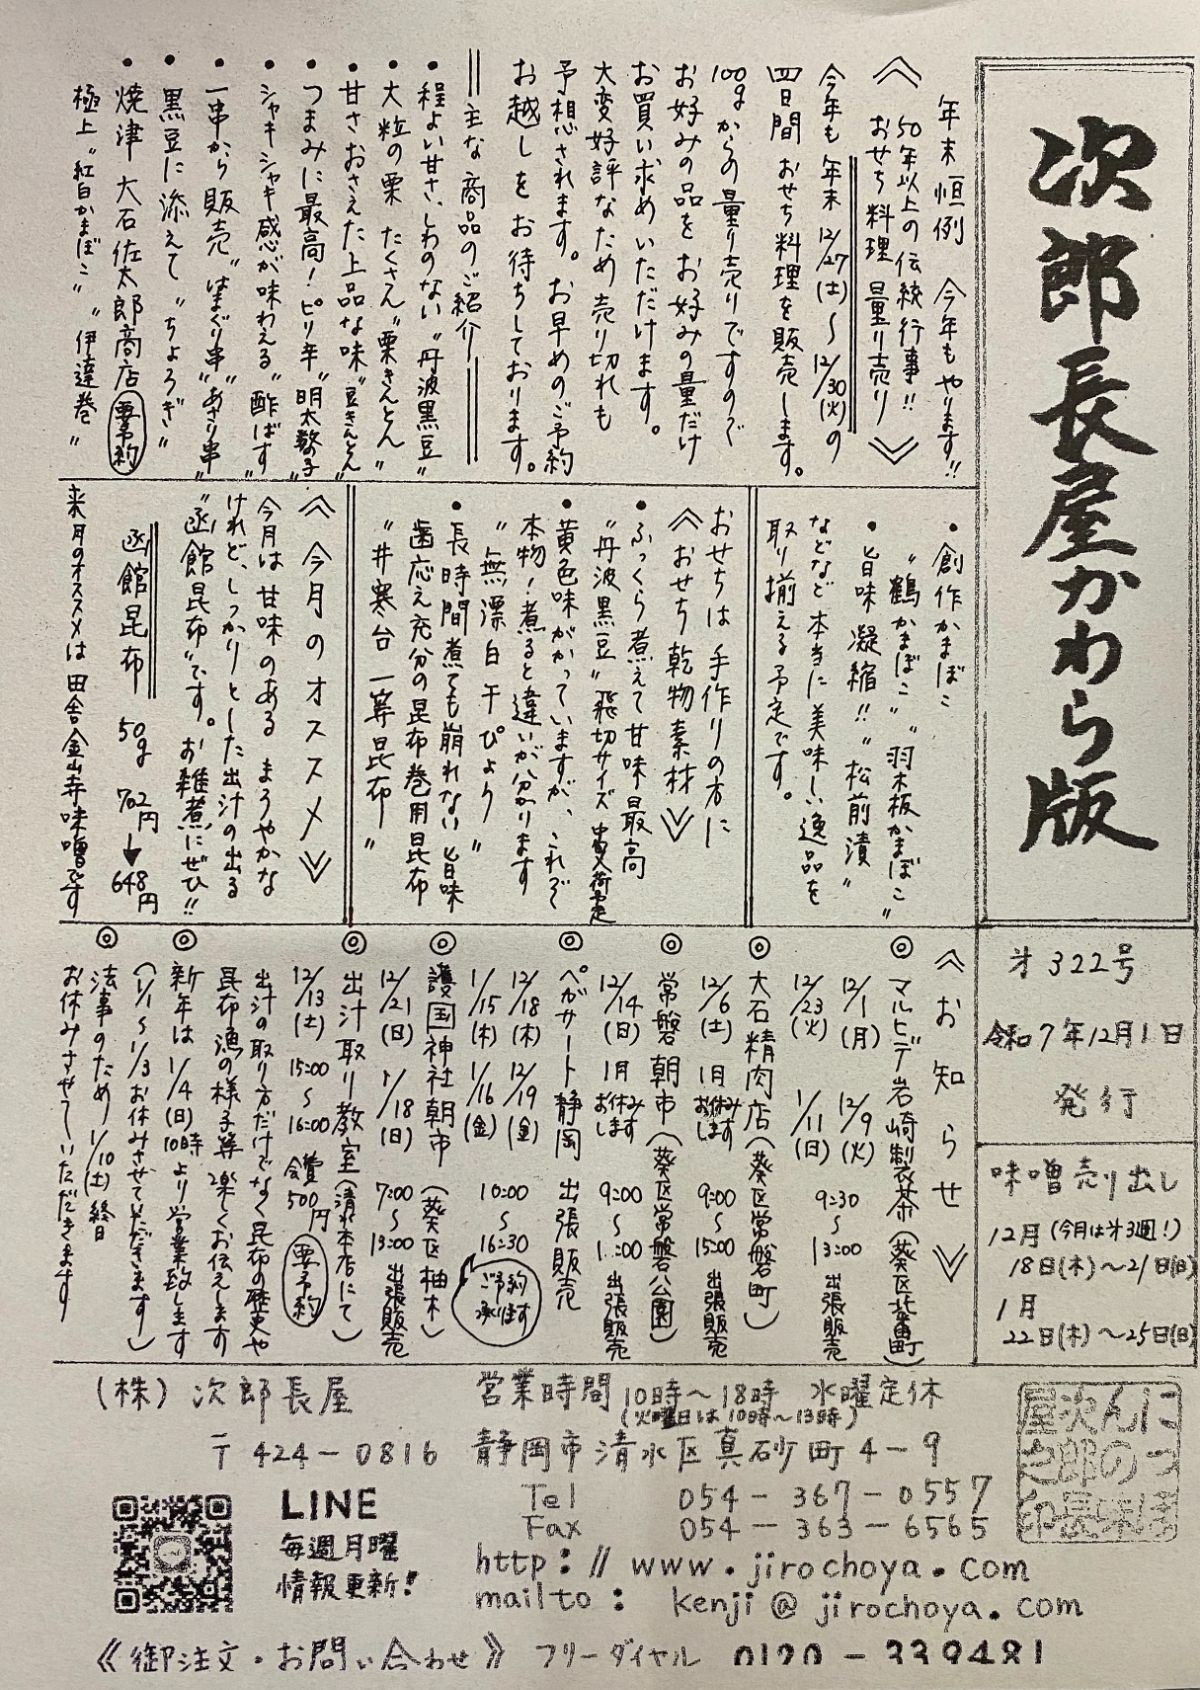 次郎長屋かわら版
第322号
令和7年12月1日
発行
味噌売り出し
12月(今月は第3週!)
18日(木)~21日(日)
1月
22日(木)~25日(日)
年末恒例 今年もやります!!
《50年以上の伝統行事!!
おせち料理 量り売り》
今年も 年末 12/27(土)~12/30(火)の
四日間 おせち料理を販売します。
100gからの量り売りですので
お好みの品をお好みの量だけ
お買い求めいただけます。
大変好評なため売り切れも
予想されます。お早めのご予約
お越しをお待ちしております。
=主な商品のご紹介=
・程よい甘さ、しわのない"丹波黒豆"
・大粒の栗 たくさん"栗きんとん"
・甘さおさえた上品な味"豆きんとん"
・つまみに最高!ピリ辛"明太数の子"
・シャキシャキ感が味わえる"酢ばす"
・一串から販売"はまぐり串""あさり串"
・黒豆に添えて"ちょろぎ"
・焼津 大石佐太郎商店 要予約
極上"紅白かまぼこ""伊達巻"
・創作かまぼこ
"鶴かまぼこ""羽木板かまぼこ"
・旨味凝縮!!"松前漬"
などなど本当に美味しい逸品を
取り揃える予定です。
おせちは手作りの方に
《おせち乾物素材》
・ふっくら煮えて甘味最高
"丹波黒豆"飛切サイズ
・黄色味がかっていますが、これぞ
本物!煮ると違いが分かります
"無漂白干ぴょう"
・長時間煮ても崩れない旨味
歯応え充分の昆布巻用昆布
"井寒台 一等昆布"
《今月のオススメ》
今月は甘味のある まろやかな
けれど、しっかりとした出汁の出る
"函館昆布"です。お雑煮にぜひ!!
函館昆布 50g 702円→648円
来月のオススメは田舎金山寺味噌です
《お知らせ》
◎マルヒデ岩崎製茶(葵区北番町)
12/1(月) 12/9(火) 9:30~13:00 出張販売
12/23(火) 1/11(日)
◎大石精肉店(葵区常磐町)
12/6(土) 1月お休みします 9:00~15:00 出張販売
◎常磐朝市(葵区常磐公園)
12/14(日) 1月お休みします 9:00~11:00 出張販売
◎ペガサート静岡 出張販売
12/18(木) 12/19(金) 10:00~16:30
1/15(木) 1/16(金) ご予約承ります
◎護国神社朝市(葵区柚木)
12/21(日) 1/18(日) 7:00~13:00 出張販売
◎出汁取り教室(清水本店にて)
12/13(土) 15:00~16:00 会費500円 要予約
出汁の取り方だけでなく昆布の歴史や
昆布漁の様子等 楽しくお伝えします
◎新年は 1/4(日)10時より営業致します
(1/1~1/3お休みさせていただきます)
◎法事のため 1/10(土)終日
お休みさせていただきます
(株)次郎長屋
営業時間 10時~18時 水曜定休
(火曜日は10時~13時)
〒424-0816 静岡市清水区真砂町4-9
Tel 054-367-0557
Fax 054-363-6565
http://www.jirochoya.com
mailto: kenji@jirochoya.com
LINE
毎週月曜
情報更新!
にっぽ
んの味
次郎長
屋之印
《御注文・お問い合わせ》 フリーダイヤル 0120-339481